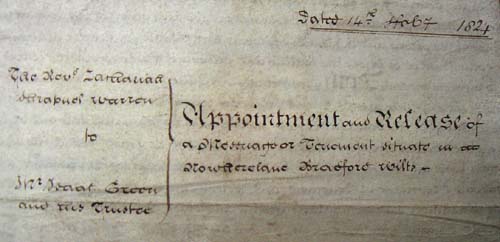 Dated 14th Feby 1824
The Revd Zachariah
Shrapnel Warren
to
Mr Isaac Green
and his Trustee
Appointment and Release of
a Messuage or Tenement situate in
Bradford Wilts